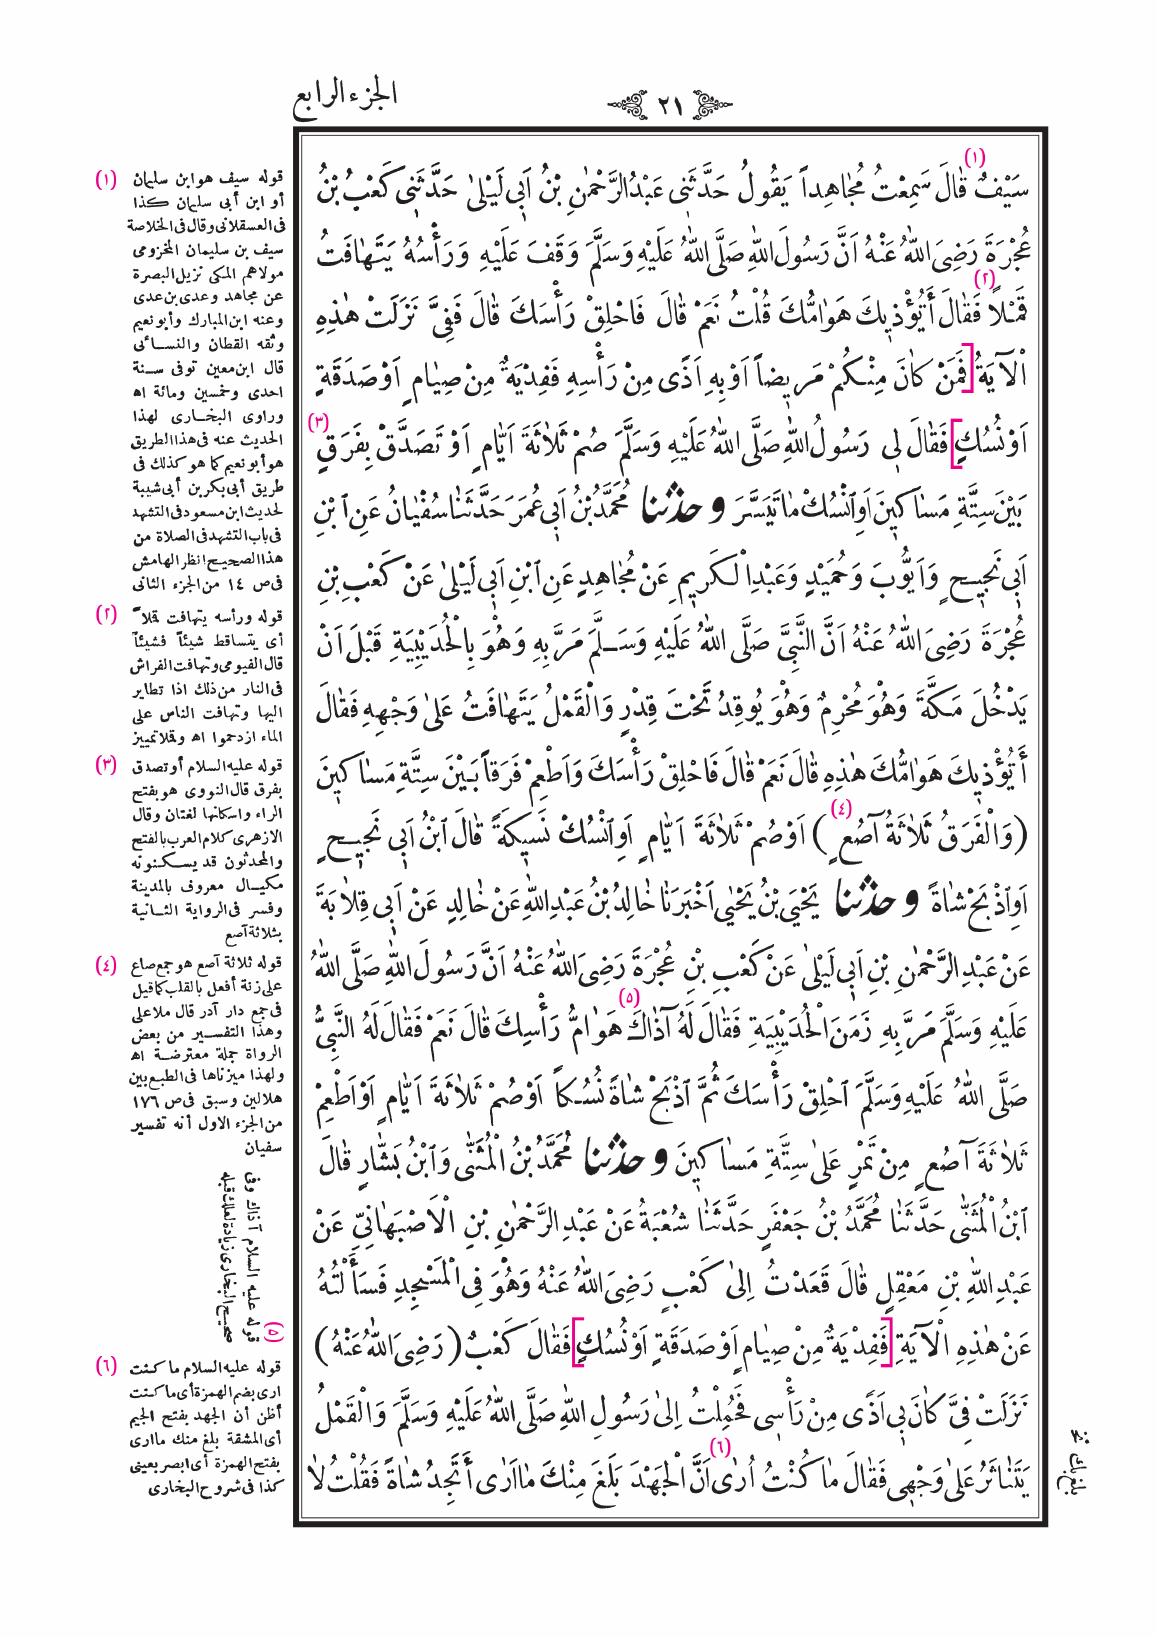 الجزء الرابع
٢١
سَيْفٌ (١) قَالَ سَمِعْتُ مُجَاهِداً يَقُولُ حَدَّثَنِى عَبْدُالرَّحْمٰنِ بْنُ اَبِى لَيْلىٰ حَدَّثَنِى كَعْبُ بْنُ
عُجْرَةَ رَضِىَ اللهُ عَنْهُ اَنَّ رَسُولَ اللهِ صَلَّى اللهُ عَلَيْهِ وَسَلَّمَ وَقَفَ عَلَيْهِ وَرَأْسُهُ يَتَهَافَتُ
قَمْلاً (٢) فَقَالَ أَيُؤْذِيكَ هَوَامُّكَ قُلْتُ نَعَمْ قَالَ فَاحْلِقْ رَأْسَكَ قَالَ فَفِىَّ نَزَلَتْ هٰذِهِ
الْآيَةُ [فَمَنْ كَانَ مِنْكُمْ مَرِيضاً اَوْ بِهِ اَذًى مِنْ رَأْسِهِ فَفِدْيَةٌ مِنْ صِيَامٍ اَوْ صَدَقَةٍ
اَوْ نُسُكٍ] فَقَالَ لِى رَسُولُ اللهِ صَلَّى اللهُ عَلَيْهِ وَسَلَّمَ صُمْ ثَلاثَةَ اَيَّامٍ اَوْ تَصَدَّقْ بِفَرَقٍ (٣)
بَيْنَ سِتَّةِ مَسَاكِينَ اَوِ انْسُكْ مَا تَيَسَّرَ وحدثنا مُحَمَّدُ بْنُ اَبِى عُمَرَ حَدَّثَنَا سُفْيَانُ عَنِ ابْنِ
اَبِى نَجِيحٍ وَاَيُّوبَ وَحُمَيْدٍ وَعَبْدِ الْكَرِيمِ عَنْ مُجَاهِدٍ عَنِ ابْنِ اَبِى لَيْلىٰ عَنْ كَعْبِ بْنِ
عُجْرَةَ رَضِىَ اللهُ عَنْهُ اَنَّ النَّبِىَّ صَلَّى اللهُ عَلَيْهِ وَسَلَّمَ مَرَّ بِهِ وَهُوَ بِالْحُدَيْبِيَةِ قَبْلَ اَنْ
يَدْخُلَ مَكَّةَ وَهُوَ مُحْرِمٌ وَهُوَ يُوقِدُ تَحْتَ قِدْرٍ وَالْقَمْلُ يَتَهَافَتُ عَلىٰ وَجْهِهِ فَقَالَ
أَتُؤْذِيكَ هَوَامُّكَ هٰذِهِ قَالَ نَعَمْ قَالَ فَاحْلِقْ رَأْسَكَ وَاَطْعِمْ فَرَقاً بَيْنَ سِتَّةِ مَسَاكِينَ
(وَالْفَرَقُ ثَلاثَةُ آصُعٍ) (٤) اَوْ صُمْ ثَلاثَةَ اَيَّامٍ اَوِ انْسُكْ نَسِيكَةً قَالَ ابْنُ اَبِى نَجِيحٍ
اَوِ اذْبَحْ شَاةً وحدثنا يَحْيَى بْنُ يَحْيٰى اَخْبَرَنَا خَالِدُ بْنُ عَبْدِ اللهِ عَنْ خَالِدٍ عَنْ اَبِى قِلَابَةَ
عَنْ عَبْدِ الرَّحْمٰنِ بْنِ اَبِى لَيْلىٰ عَنْ كَعْبِ بْنِ عُجْرَةَ رَضِىَ اللهُ عَنْهُ اَنَّ رَسُولَ اللهِ صَلَّى اللهُ
عَلَيْهِ وَسَلَّمَ مَرَّ بِهِ زَمَنَ الْحُدَيْبِيَةِ فَقَالَ لَهُ آذَاكَ (٥) هَوَامُّ رَأْسِكَ قَالَ نَعَمْ فَقَالَ لَهُ النَّبِىُّ
صَلَّى اللهُ عَلَيْهِ وَسَلَّمَ احْلِقْ رَأْسَكَ ثُمَّ اذْبَحْ شَاةً نُسُكاً اَوْ صُمْ ثَلاثَةَ اَيَّامٍ اَوْ اَطْعِمْ
ثَلاثَةَ آصُعٍ مِنْ تَمْرٍ عَلىٰ سِتَّةِ مَسَاكِينَ وحدثنا مُحَمَّدُ بْنُ الْمُثَنّٰى وَابْنُ بَشَّارٍ قَالَ
ابْنُ الْمُثَنّٰى حَدَّثَنَا مُحَمَّدُ بْنُ جَعْفَرٍ حَدَّثَنَا شُعْبَةُ عَنْ عَبْدِ الرَّحْمٰنِ بْنِ الْاَصْبَهَانِىِّ عَنْ
عَبْدِ اللهِ بْنِ مَعْقِلٍ قَالَ قَعَدْتُ اِلىٰ كَعْبٍ رَضِىَ اللهُ عَنْهُ وَهُوَ فِى الْمَسْجِدِ فَسَأَلْتُهُ
عَنْ هٰذِهِ الْآيَةِ [فَفِدْيَةٌ مِنْ صِيَامٍ اَوْ صَدَقَةٍ اَوْ نُسُكٍ] فَقَالَ كَعْبٌ (رَضِىَ اللهُ عَنْهُ)
نَزَلَتْ فِىَّ كَانَ بِى اَذًى مِنْ رَأْسِى فَحُمِلْتُ اِلىٰ رَسُولِ اللهِ صَلَّى اللهُ عَلَيْهِ وَسَلَّمَ وَالْقَمْلُ
يَتَنَاثَرُ عَلىٰ وَجْهِى فَقَالَ مَا كُنْتُ اُرٰى (٦) اَنَّ الْجَهْدَ بَلَغَ مِنْكَ مَا اَرٰى أَتَجِدُ شَاةً فَقُلْتُ لَا
(١) قوله سيف هو ابن سليمان
أو ابن أبى سليمان كذا
فى العسقلانى وقال فى الخلاصة
سيف بن سليمان المخزومى
مولاهم المكى نزيل البصرة
عن مجاهد وعدى بن عدى
وعنه ابن المبارك وأبو نعيم
وثقه القطان والنسائى
قال ابن معين توفى سنة
احدى وخمسين ومائة اه
وراوى البخارى لهذا
الحديث عنه فى هذا الطريق
هو أبو نعيم كما هو كذلك فى
طريق أبى بكر بن أبى شيبة
لحديث ابن مسعود فى التشهد
فى باب التشهد فى الصلاة من
هذا الصحيح انظر الهامش
فى ص ١٤ من الجزء الثانى
(٢) قوله ورأسه يتهافت قملاً
أى يتساقط شيئاً فشيئاً
قال الفيومى وتهافت الفراش
فى النار من ذلك اذا تطاير
اليها وتهافت الناس على
الماء ازدحموا اه وقملا تمييز
(٣) قوله عليه السلام أو تصدق
بفرق قال النووى هو بفتح
الراء واسكانها لغتان وقال
الازهرى كلام العرب بالفتح
والمحدثون قد يسكنونه
مكيال معروف بالمدينة
وفسر فى الرواية الثانية
بثلاثة آصع
(٤) قوله ثلاثة آصع هو جمع صاع
على زنة أفعل بالقلب كما قيل
فى جمع دار آدر قال ملا على
وهذا التفسير من بعض
الرواة جملة معترضة اه
ولهذا ميزناها فى الطبع بين
هلالين وسبق فى ص ١٧٦
من الجزء الاول أنه تفسير
سفيان
(٥) قوله عليه السلام آذاك وفى
صحيح البخارى زيادة لعلك قبله
(٦) قوله عليه السلام ما كنت
ارى بضم الهمزة أى ما كنت
أظن أن الجهد بفتح الجيم
أى المشقة بلغ منك ما ارى
بفتح الهمزة أى ابصر بعينى
كذا فى شروح البخارى